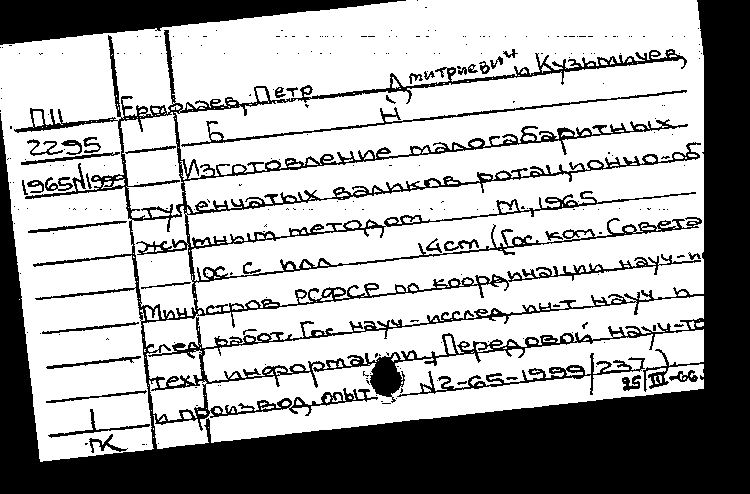 Ермолаев, Петр Дмитриевич и Кузьмичев,
П11
Б Н
2295
Изготовление малогабаритных
1965N1999
ступенчатых валиков ротационно-об-
жимным методом. М., 1965
10с. с илл. 14см. (Гос. ком. Совета
Министров РСФСР по координации науч-и
след. работ. Гос науч-исслед. ин-т науч. и
техн информации. Передовой науч-те
и производ. опыт N2-65-1999/237).
25/III-66.
1
ПК